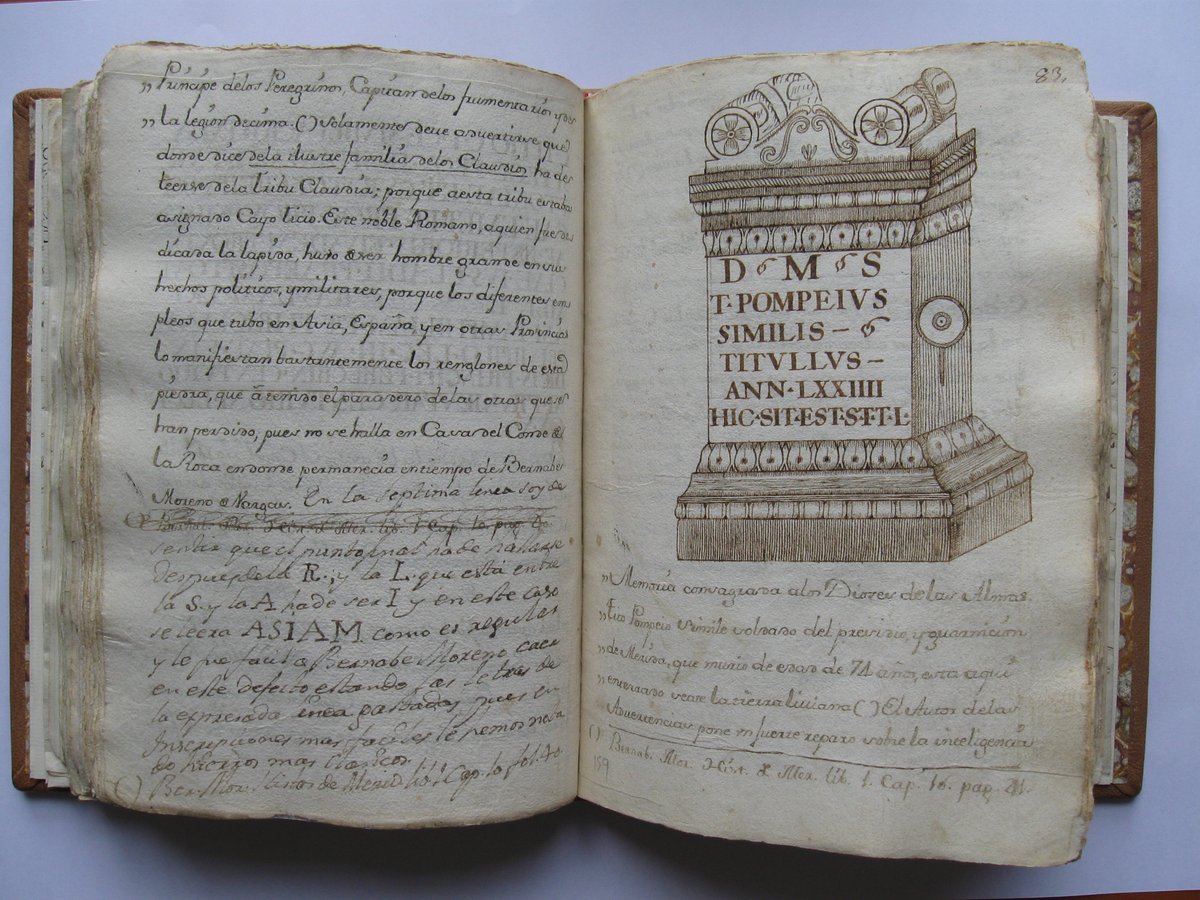 „ Príncipe delos Peregrinos, Capitan delos frumentarios y de
„ la legion decima. ( ) solamente deve advertirse que
donde dice dela ilustre familia delos Claudios ha de
leerse dela tribu Claudia; porque aesta tribu estaba
asignado Cayo licio. Este noble Romano, aquien fue de
dicada la lapida, huvo de ser hombre grande en sus
hechos politicos, y militares, porque los diferentes em
pleos que tubo en Asia, España, y en otras Provincias
lo manifiestan bastantemente los renglones de esta
piedra, que à tenido el paradero delas otras que se
han perdido, pues no se halla en Casa del Conde de
la Roca endonde permanecia en tiempo de Bernabe
Moreno de Vargas. En la septima linea soy de
sentir que el punto final ha de hallarse
despues dela R., y la L. que está entre
la S. y la A. ha de ser I y en este caso
se leera ASIAM. como es regular
y le fue facil a Bernabe Moreno caer
en este defecto estando las letras de
la expresada linea gastadas, pues en
Inscripciones mas faciles le hemos nota
do hierros mas clasicos.
( ) Ber. Mor. Histor. de Merid. lib. 1. Cap. 10. fol. 40.
83.
D M S
T. POMPEIVS
SIMILIS –
TITVLLVS –
ANN. LXXIIII
HIC. SIT. EST. S. T. T. L.
„ Memoria consagrada alos Dioses de las Almas.
„ Tito Pompeio Simile soldado del presidio, y guarnicion
„ de Merida, que murio de edad de 74 años, esta aqui
„ enterrado seate la tierra liviana ( ) El Autor de las
Advertencias pone un fuerte reparo sobre la inteligencia
( ) Bernab. Mor. Hist. de Mer. lib. 1. Cap. 10. pag. 41.
159